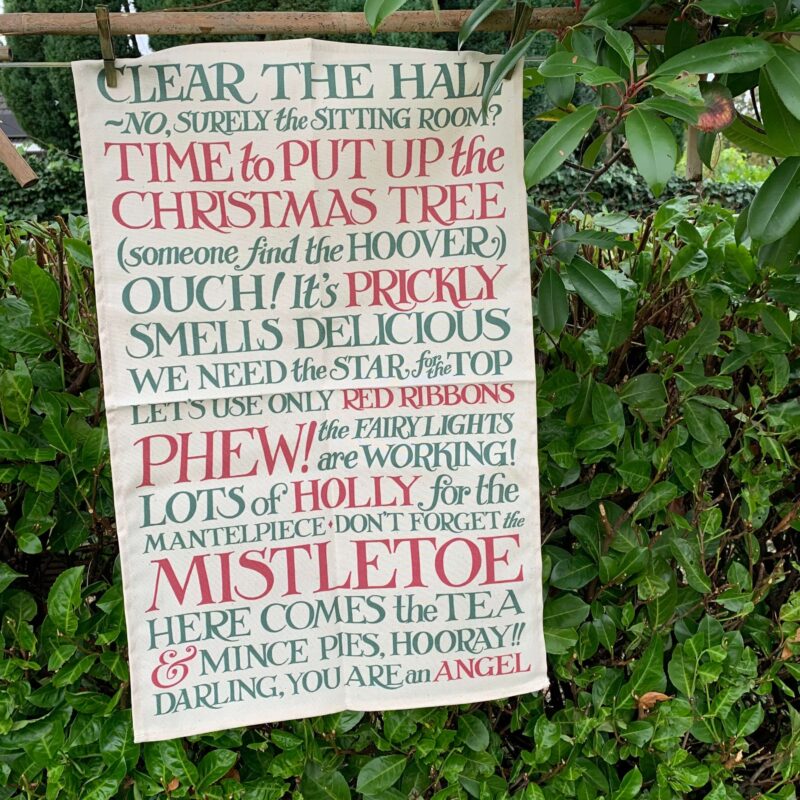 CLEAR THE HALL
~NO, SURELY the SITTING ROOM?
TIME to PUT UP the
CHRISTMAS TREE
(someone find the HOOVER)
OUCH! It's PRICKLY
SMELLS DELICIOUS
WE NEED the STAR, for the TOP
LET'S USE ONLY RED RIBBONS
PHEW! the FAIRY LIGHTS
are WORKING!
LOTS of HOLLY for the
MANTELPIECE ♦ DON'T FORGET the
MISTLETOE
HERE COMES the TEA
& MINCE PIES, HOORAY!!
DARLING, YOU ARE an ANGEL